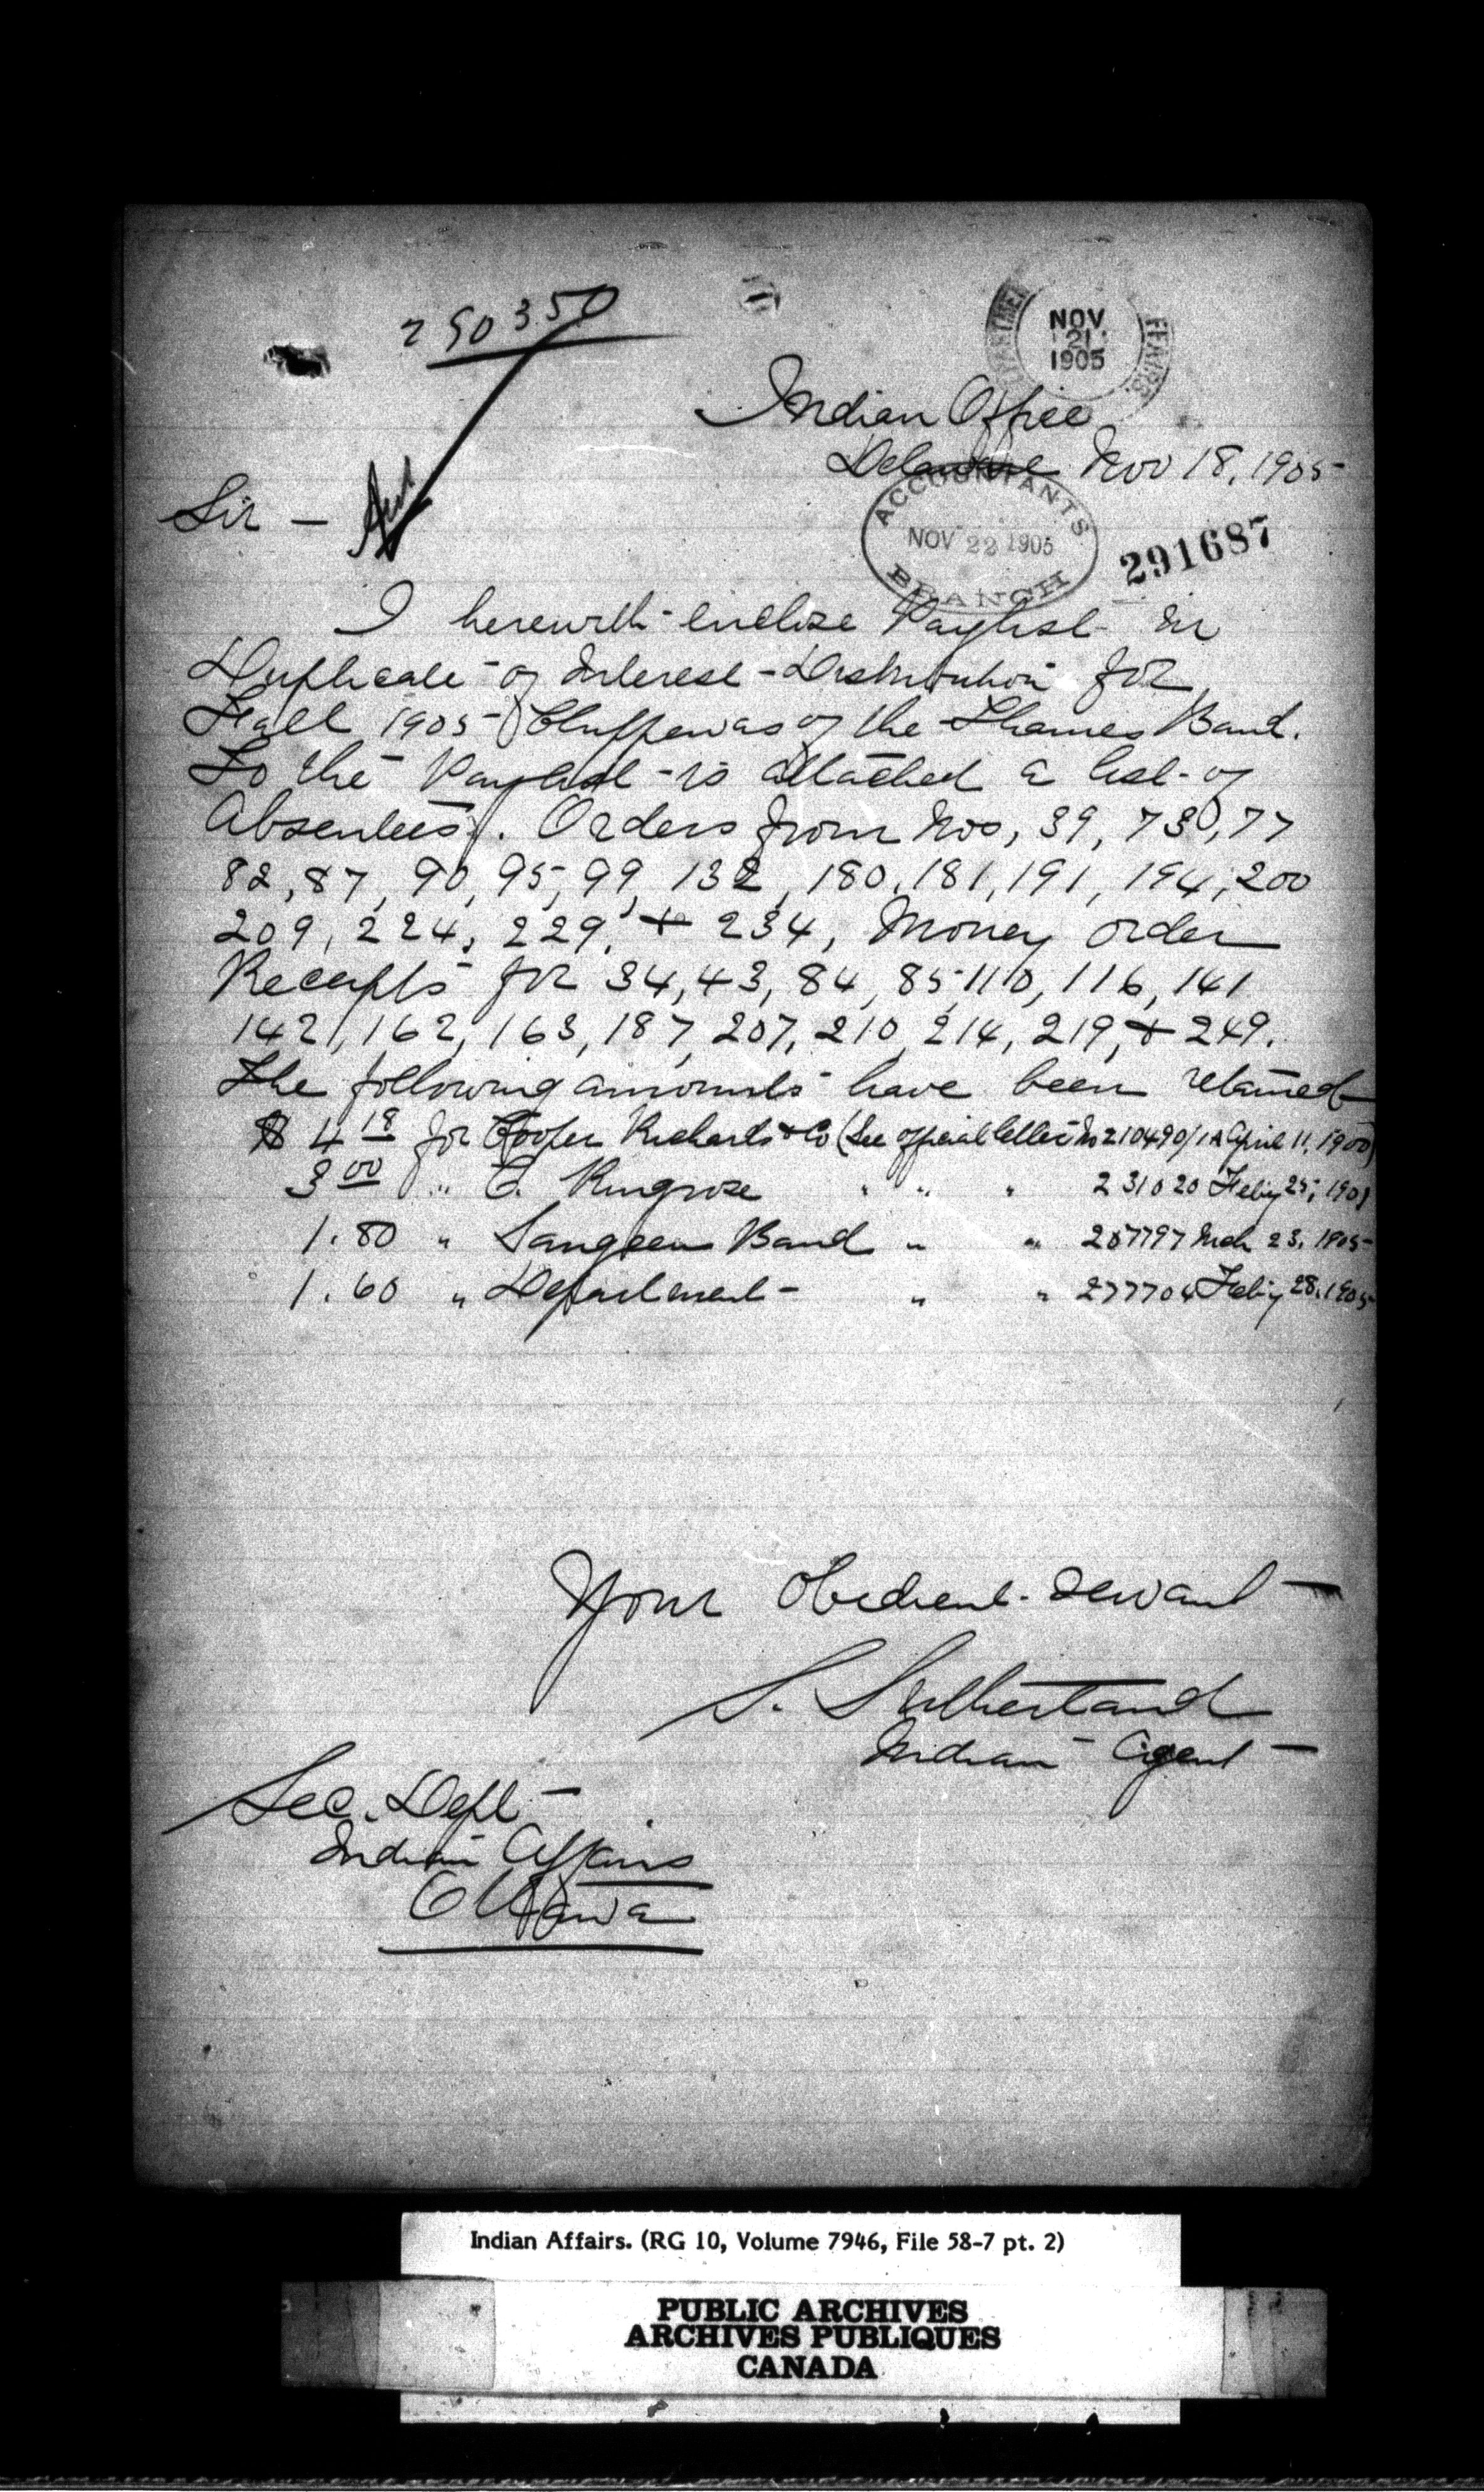 290350
NOV
21
1905
Indian Office
Delaware Nov 18, 1905
Sir —
ACCOUNTANTS
NOV 22 1905
BRANCH
291687
I herewith enclose Paylist in
Duplicate of Interest Distribution for
Fall 1905 Chippewas of the Thames Band.
To the Paylist is attached a list of
Absentees. Orders from Nos, 39, 73, 77
82, 87, 90, 95, 99, 132, 180, 181, 191, 194, 200
209, 224, 229, + 234, Money order
Receipts for 34, 43, 84, 85, 110, 116, 141
142, 162, 163, 187, 207, 210, 214, 219, + 249.
The following amounts have been retained
$ 4 18 for Cooper Richards + Co (See official letter No 210490/1A April 11, 1900)
3 00 " C. Ringrose " " " 231020 Feby 25, 1901
1.80 " Saugeen Band " " 267797 Mch 23, 1905
1.60 " Department " " 277704 Feby 28, 1905
Your Obedient Servant
S. Sutherland
Indian Agent
Sec. Dept
Indian Affairs
Ottawa
Indian Affairs. (RG 10, Volume 7946, File 58-7 pt. 2)
PUBLIC ARCHIVES
ARCHIVES PUBLIQUES
CANADA